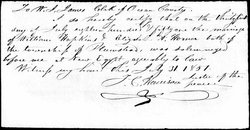 To W. I. James Clerk of Ocean County.
I do hereby certify that on the thirtyfirst
day of July eighteen hundred & fifty one the marriage
of William Hopkins & Elizabeth A. Horner both of
the township of Plumsted, was solemnized
before me at New Egypt, agreeably to Law
Witness my hand this July 31 1851
J. C. Justice of the
peace